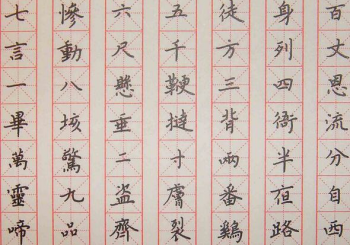 百丈恩流分自西
身列四衙半亱路
徒方三背兩番鷄
五千鞕撻寸膚裂
六尺懸垂二盜齊
慘動八垓驚九品
七言一畢萬靈啼